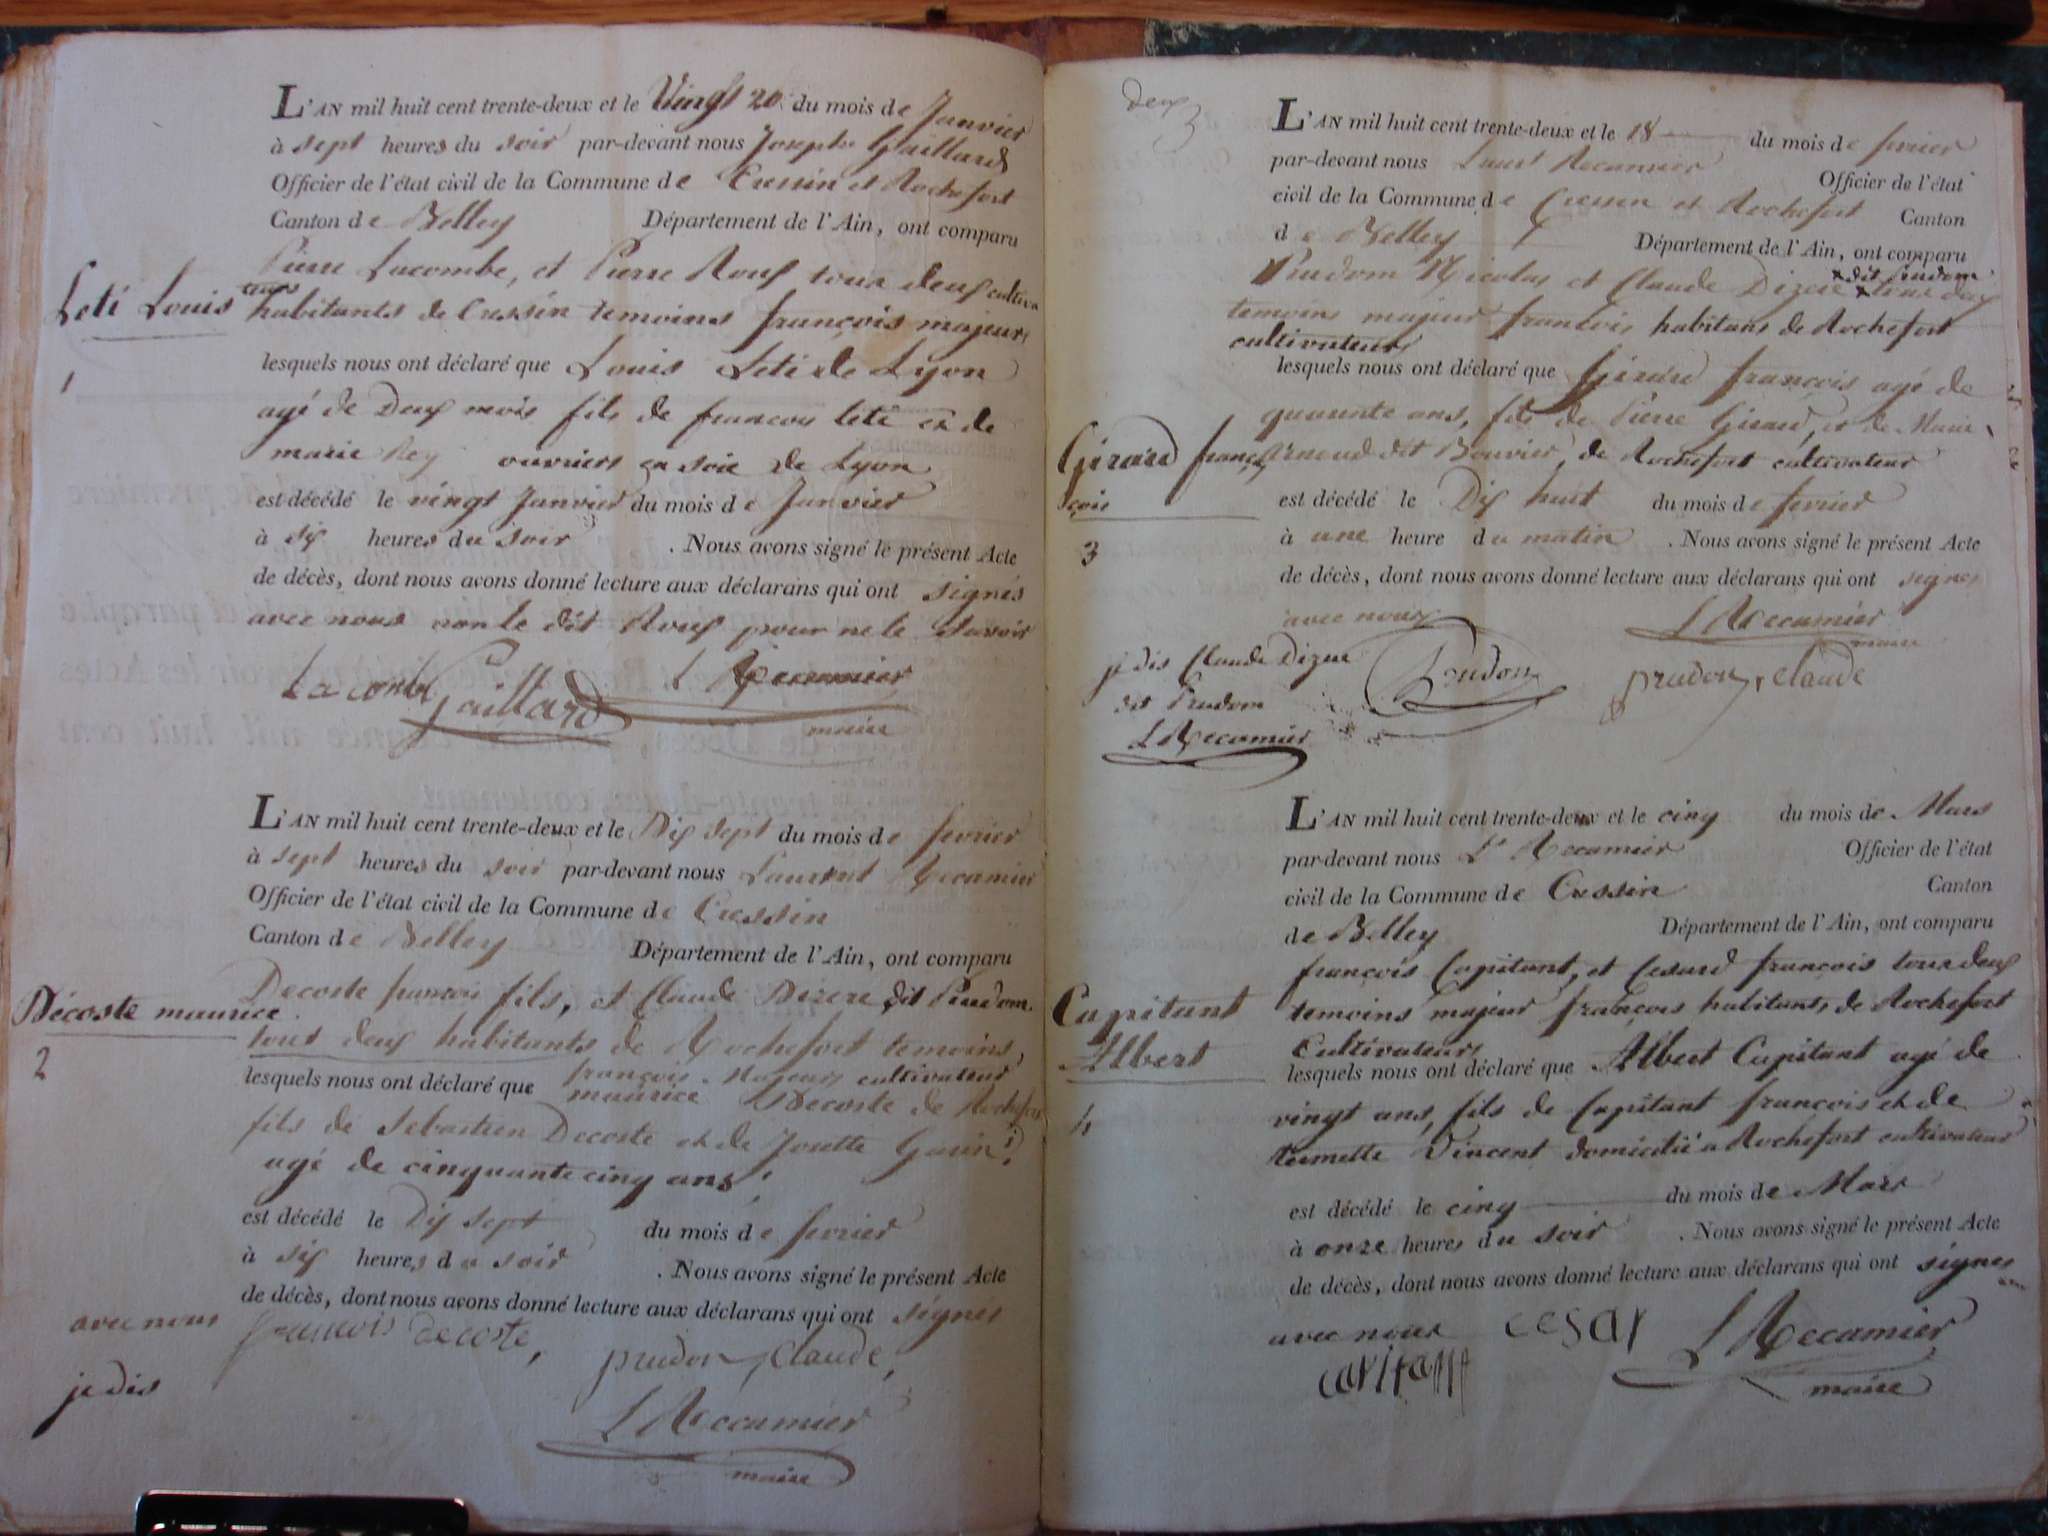 L'AN mil huit cent trente-deux et le Vingt 20 du mois de Janvier
à sept heures du soir par-devant nous Josephe Gaillard
Officier de l'état civil de la Commune de Cressin et Rochefort
Canton de Belley Département de l'Ain, ont comparu
Pierre Lacombe, et Pierre Rouf tous deux cultiva
teurs
Leti Louis habitants de Cressin temoins françois majeurs
1 lesquels nous ont déclaré que Louis Leti de Lyon
agé de Deux mois fils de francois leti et de
marie Rey ouvriers en soie de Lyon
est décédé le vingt Janvier du mois de Janvier
à six heures du soir . Nous avons signé le présent Acte
de décès, dont nous avons donné lecture aux déclarans qui ont signés
avec nous non le dit Rouf pour ne le savoir
Lacombe Gaillard L Recamier
maire
L'AN mil huit cent trente-deux et le Dix sept du mois de fevrier
à sept heures du soir par-devant nous Laurent Recamier
Officier de l'état civil de la Commune de Cressin
Canton de Belley Département de l'Ain, ont comparu
Decoste francois fils, et Claude Dizere dit Prudom
Décoste maurice
tout deux habitants de Rochefort temoins,
françois Majeurs cultivateur
2 lesquels nous ont déclaré que maurice Decoste de Rochefort
fils de Sebastien Decoste et de Josette Garin,
agé de cinquante cinq ans,
est décédé le Dix sept du mois de fevrier
à six heures du soir . Nous avons signé le présent Acte
de décès, dont nous avons donné lecture aux déclarans qui ont signés
avec nous francois decoste, prudon, Claude,
je dis
L Recamier
maire
deux
3
L'AN mil huit cent trente-deux et le 18 du mois de fevrier
par-devant nous Laurt Recamier Officier de l'état
civil de la Commune de Cressin et Rochefort Canton
de Belley Département de l'Ain, ont comparu
x dit Prudom
Prudom Nicolas et Claude Dizere x tous deux
temoins majeur francois, habitans de Rochefort
cultivateurs
lesquels nous ont déclaré que Girard françois agé de
quarente ans, fils de Pierre Girard, et de Marie
Girard fran arneud dit Bouvier, de Rochefort cultivateur
çois est décédé le Dix huit du mois de fevrier
3 à une heure du matin . Nous avons signé le présent Acte
de décès, dont nous avons donné lecture aux déclarans qui ont signes
avec nous L Recamier
maire
je dis Claude Dizere Prudon prudon, Claude
dit Prudom
L Recamier
L'AN mil huit cent trente-deux et le cinq du mois de Mars
par-devant nous Lt Recamier Officier de l'état
civil de la Commune de Cressin Canton
de Belley Département de l'Ain, ont comparu
françois Capitant, et Cesard françois tous deux
Capitant temoins majeur françois habitants de Rochefort
Cultivateurs
Albert lesquels nous ont déclaré que Albert Capitant agé de
4 vingt ans, fils de Capitant françois et de
Vincent domicilié a Rochefort cultivateur
est décédé le cinq du mois de Mars
à onze heures du soir . Nous avons signé le présent Acte
de décès, dont nous avons donné lecture aux déclarans qui ont signes
avec nous cesar L Recamier
capitant maire